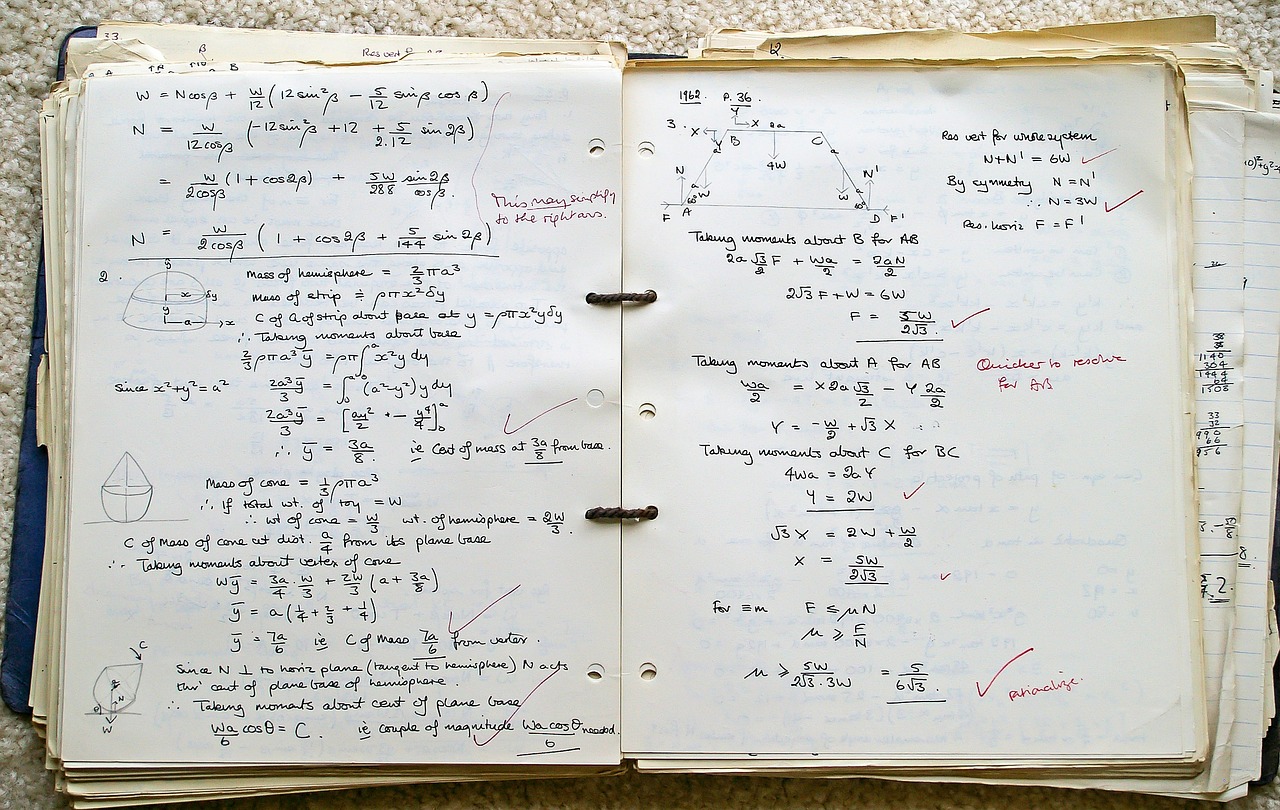 33.
β
Res vert
B
W = Ncosβ + W/12 (12sin²β − 5/12 sinβ cosβ)
N = W/12cosβ (−12sin²β + 12 + 5/2.12 sin2β)
= W/2cosβ (1 + cos2β) + 5W/288 sin2β/cosβ.
This may simplify
to the right ans.
N = W/2cosβ (1 + cos2β + 5/144 sin2β)
2.
y
x δy
y
a x
Mass of hemisphere = 2/3 πa³
Mass of strip ≑ ρπx²δy
C of G of strip about base at y = ρπx²yδy
∴ Taking moments about base
2/3 ρπa³ȳ = ρπ∫₀ᵃ x²y dy
Since x²+y²=a² 2a³ȳ/3 = ∫₀ᵃ (a²−y²)y dy
2a³ȳ/3 = [ay²/2 − y⁴/4]₀ᵃ
∴ ȳ = 3a/8 ie Cent of mass at 3a/8 from base.
Mass of cone = 1/3 ρπa³
∴ If total wt. of toy = W
∴ wt of cone = W/3 wt. of hemisphere = 2W/3.
C of Mass of cone at dist. a/4 from its plane base
∴ Taking moments about vertex of cone
Wȳ = 3a/4 . W/3 + 2W/3 (a + 3a/8)
ȳ = a(1/4 + 2/3 + 1/4)
ȳ = 7a/6 ie C of Mass 7a/6 from vertex.
C
N
θ
W
Since N ⊥ to horiz plane (tangent to hemisphere) N acts
thro' cent of plane base of hemisphere.
∴ Taking moments about cent of plane base
Wa/6 cosθ = C. ie couple of magnitude Wa cosθ/6 needed.
12.
1962. P. 36.
Y
3. X X 2a
B C
Y a a
4W
N a a N'
W W
60° 60°
F A D F'
Res vert for whole system
N+N' = 6W
By symmetry N = N'
∴ N = 3W
Res. horiz F = F'
Taking moments about B for AB
2a √3/2 F + Wa/2 = 2aN/2
2√3 F + W = 6W
F = 5W/2√3.
Taking moments about A for AB
Quicker to resolve
for AB
Wa/2 = X2a √3/2 − Y 2a/2
Y = −W/2 + √3 X
Taking moments about C for BC
4Wa = 2aY
Y = 2W
√3 X = 2W + W/2
X = 5W/2√3
For ≡m F ≤ μN
μ ≥ F/N
μ ≥ 5W/2√3.3W = 5/6√3.
rationalize.
38
38
1140
304
1444
64
1508
33
32
990
66
956
8.
2.